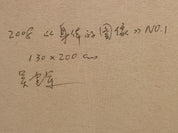 2008 《身体的图像》 NO.1
130×200 cm